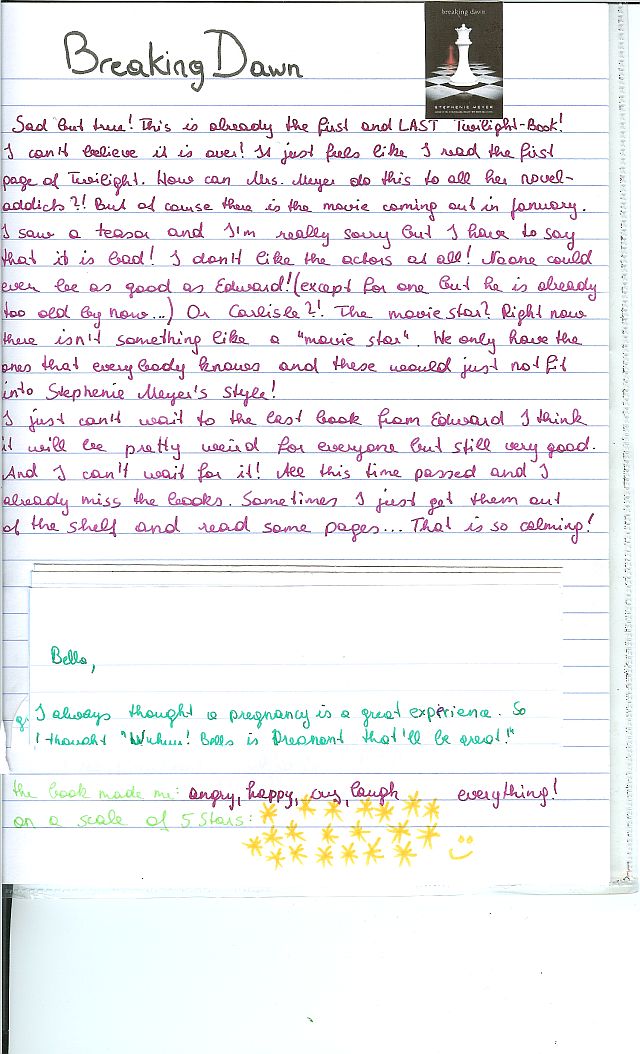 breaking dawn
STEPHENIE MEYER
Breaking Dawn
Sad but true! This is already the first and LAST Twilight-Book!
I can't believe it is over! It just feels like I read the first
page of Twilight. How can Mrs. Meyer do this to all her novel-
addicts?! But of course there is the movie coming out in january.
I saw a teasor and I'm really sorry but I have to say
that it is bad! I don't like the actors at all! Noone could
ever be as good as Edward! (except for one but he is already
too old by now...) Or Carlisle?! The movie star? Right now
there isn't something like a "movie star". We only have the
ones that everybody knows and these would just not fit
into Stephenie Meyer's style!
I just can't wait to the last book from Edward I think
it will be pretty weird for everyone but still very good.
And I can't wait for it! All this time passed and I
already miss the books. Sometimes I just get them out
of the shelf and read some pages... That is so calming!
Bella,
I always thought a pregnancy is a great experience. So
I thought "Wuhuu! Bella is Preanant that'll be great!"
the book made me: angry, happy, cry, laugh everything!
on a scale of 5 Stars: